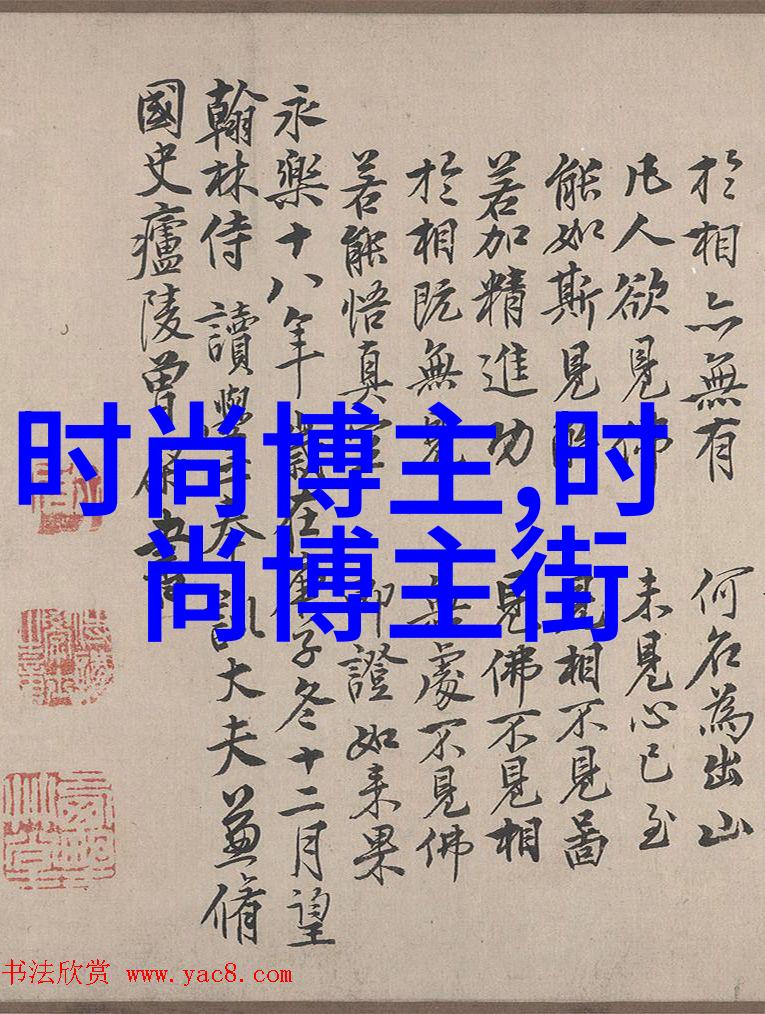 於相亦無有 何名為出山
凡人欲見佛 未見心已至
能如斯見 見相不見啚
若加精進功 見佛不見相
於相既無見 無處不見佛
若能悟真空 即證如来果
永樂十八年歲在庚子冬十二月望
翰林侍讀學士奉訓大夫兼脩
國史廬陵曾棨書
时尚博主,时
尚博主街
书法欣赏 www.yac8.com